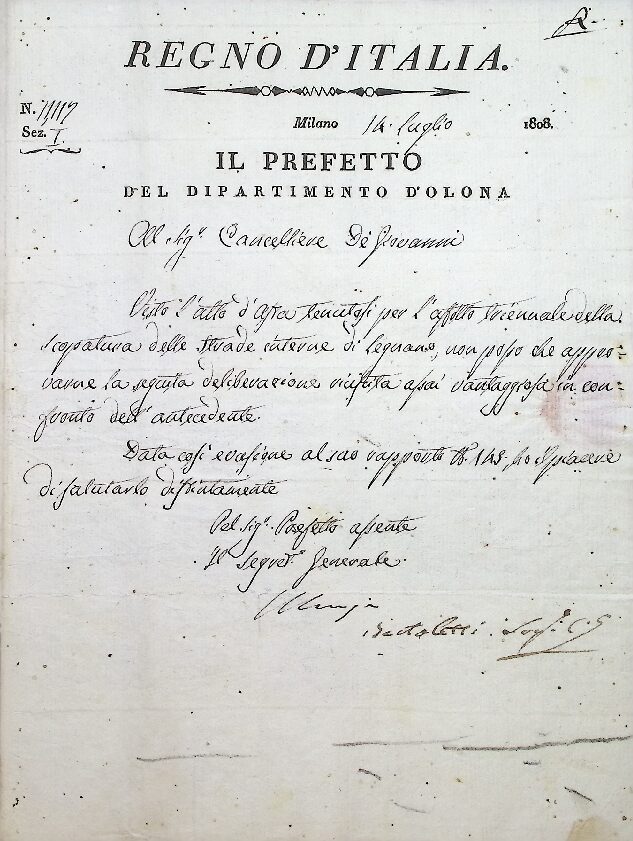 R.
REGNO D'ITALIA.
N. 11117
Sez. I.
Milano 14. luglio 1808.
IL PREFETTO
DEL DIPARTIMENTO D'OLONA
All Sig.r Cancelliere De Giovanni
Visto l'atto d'Asta tenutosi per l'affitto triennale della
scopatura delle strade interne di Legnano, non posso che appro-
varne la seguita deliberazione riuscita assai vantaggiosa in con-
fronto dell'antecedente.
Data così evasione al suo rapporto N. 148, ho il piacere
di salutarlo distintamente
Pel Sig.r Prefetto assente
Il Segret.o Generale.
Bertoletti